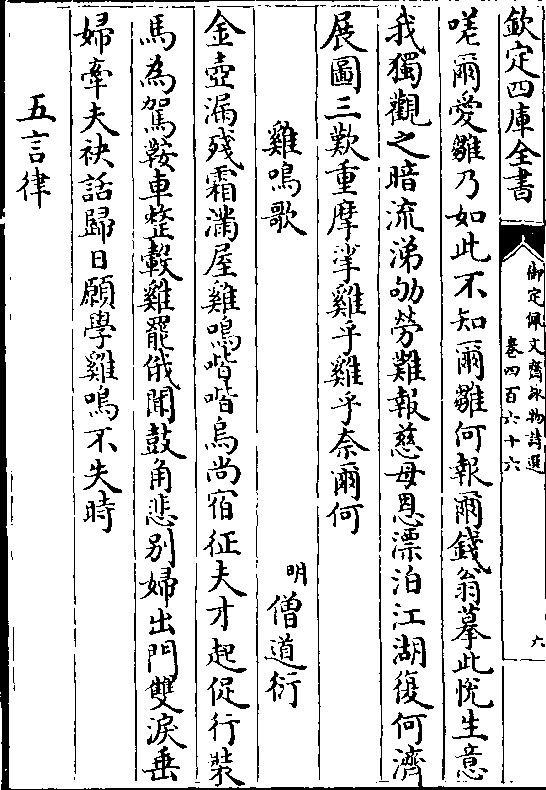 欽定四庫全書
御定佩文齋詠物詩選
卷四百六十六
六
嗟爾愛雛乃如此不知爾雛何報爾錢翁摹此恱生意
我獨觀之暗流涕劬勞難報慈母恩漂泊江湖復何濟
展圖三歎重摩挲雞乎雞乎奈爾何
雞鳴歌
明僧道衍
金壺漏殘霜滿屋雞鳴喈喈烏尚宿征夫才起促行裝
馬為駕鞍車整轂雞罷俄聞鼓角悲别婦出門雙淚垂
婦牽夫袂話歸日願學雞鳴不失時
五言律